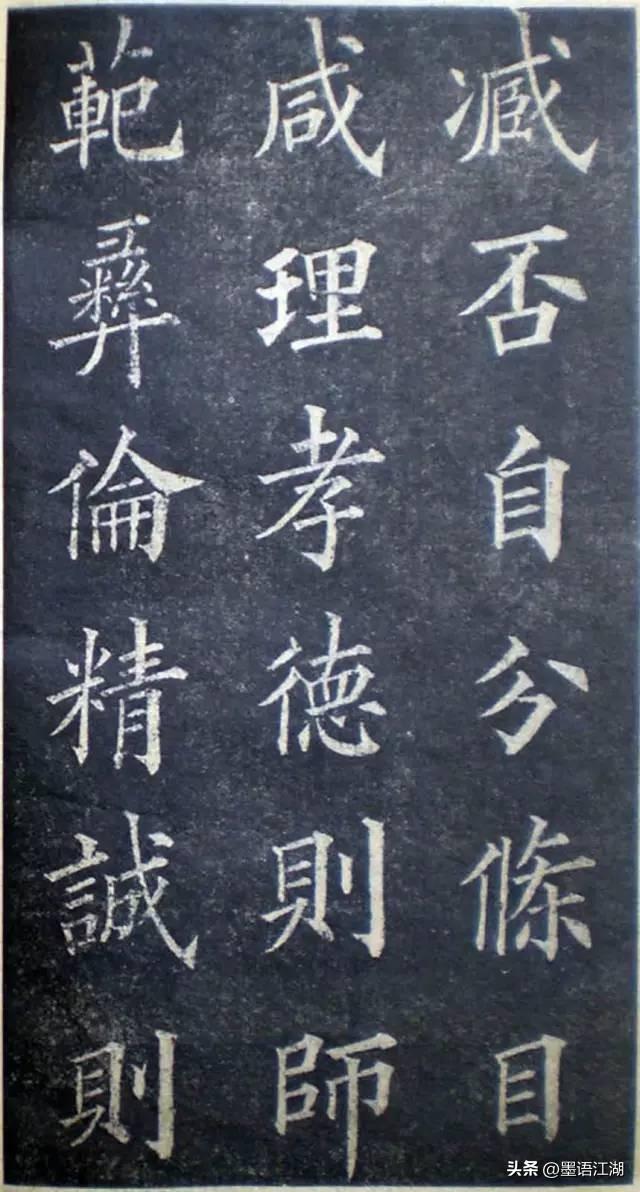 臧否自分條目
咸理孝德則師
範彝倫精誠則
头条 @墨语江湖